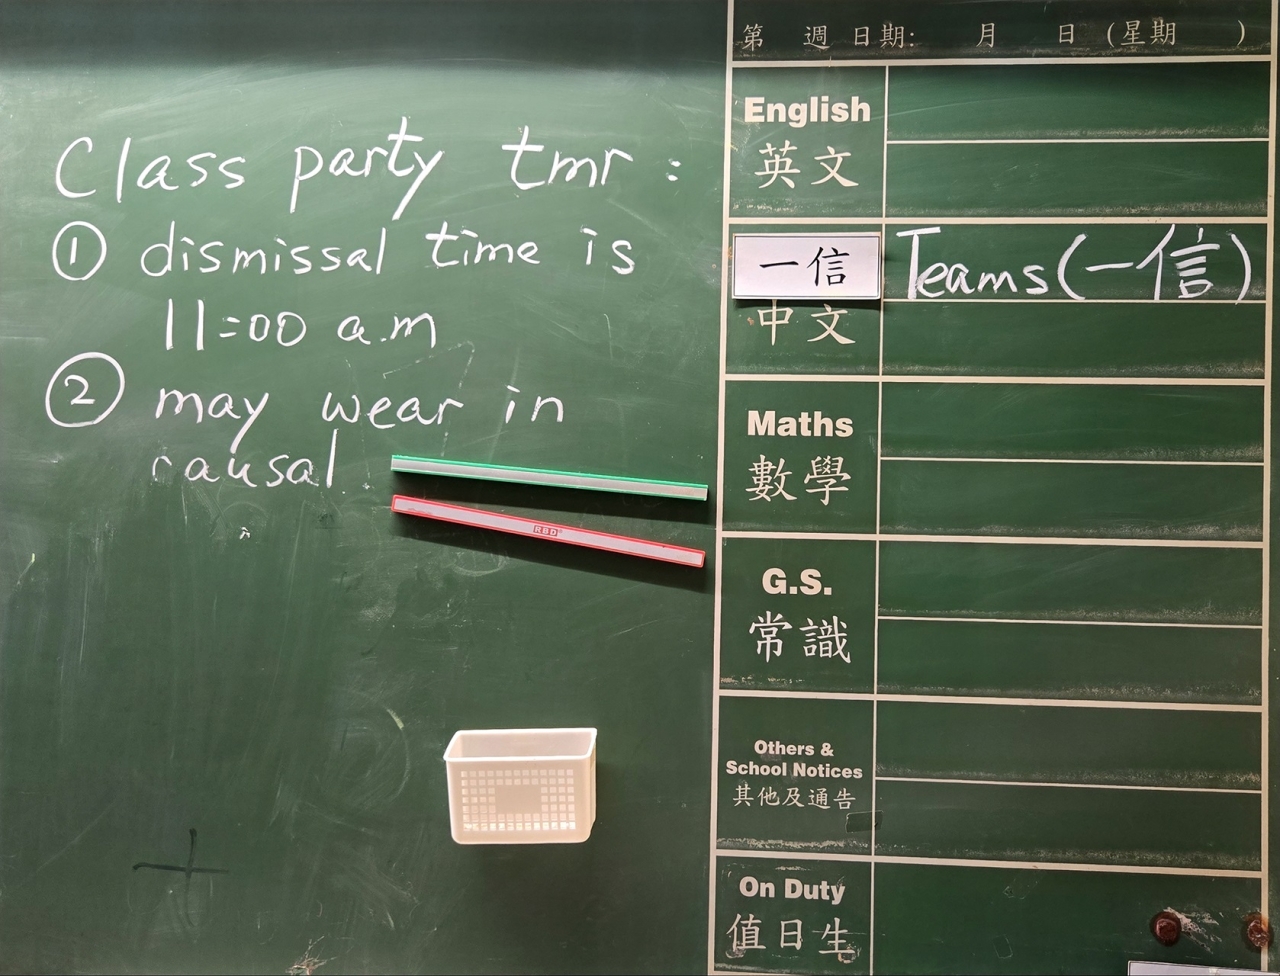 Class party tmr :
① dismissal time is
11:00 a.m
② may wear in
causal
RBD
第 週 日期: 月 日 (星期 )
English
英文
一信 Teams(一信)
中文
Maths
數學
G.S.
常識
Others &
School Notices
其他及通告
On Duty
值日生